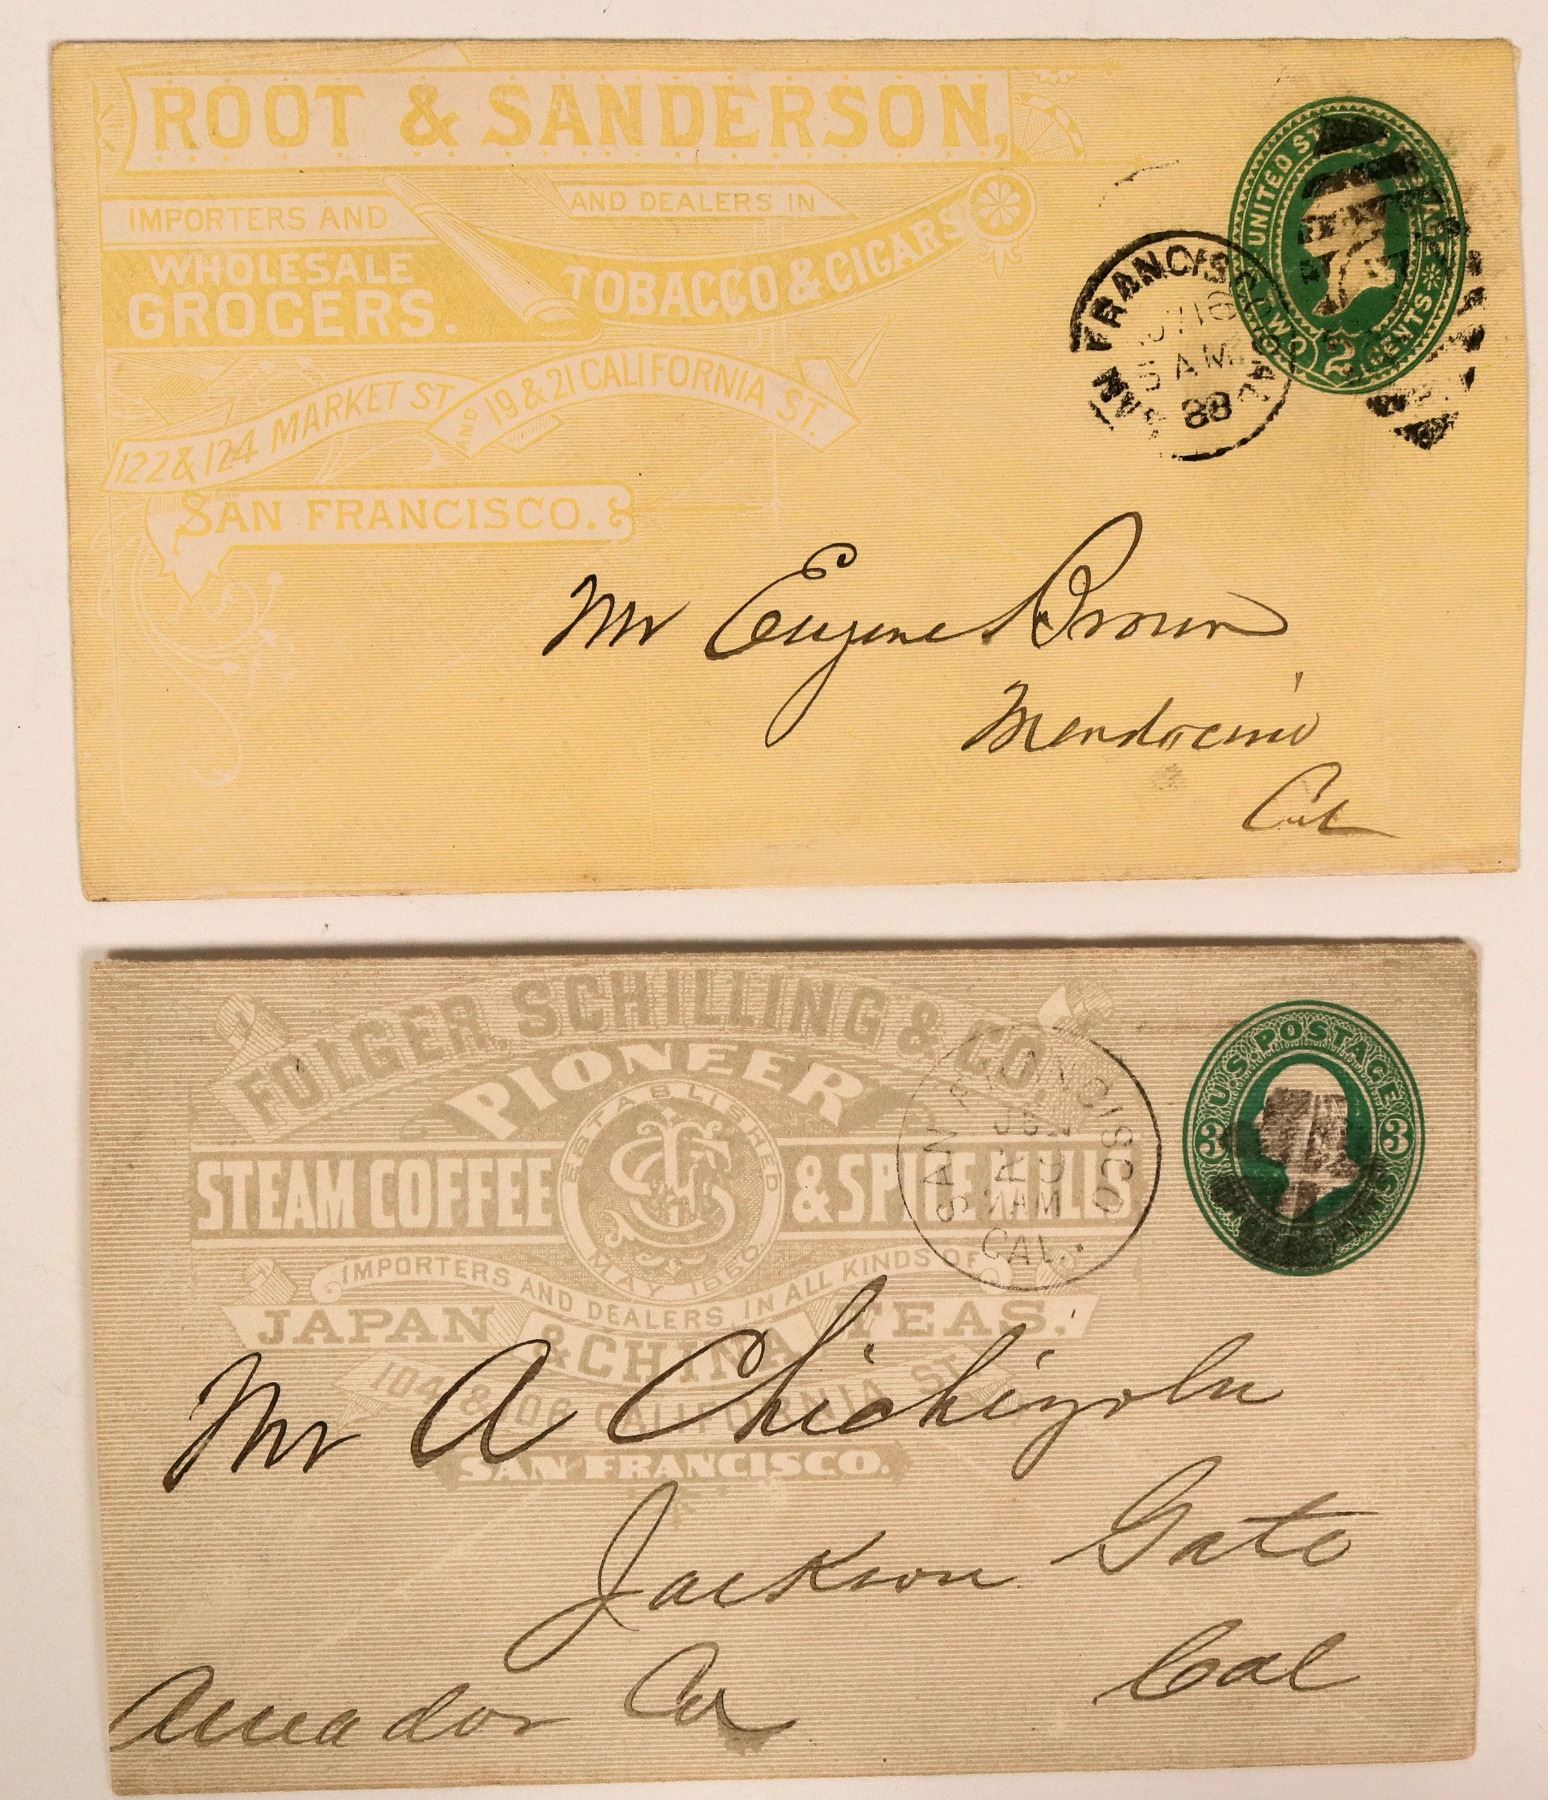 ROOT & SANDERSON,
IMPORTERS AND
WHOLESALE
GROCERS.
AND DEALERS IN
TOBACCO & CIGARS
122 & 124 MARKET ST
AND 19 & 21 CALIFORNIA ST.
SAN FRANCISCO.
UNITED STATES POSTAGE
TWO 2 CENTS
SAN FRANCISCO, CAL.
AM
88
Mr Eugene Brown
Mendocino
Cal
FOLGER, SCHILLING & CO.
PIONEER
STEAM COFFEE & SPICE MILLS
ESTABLISHED
MAY, 1850
IMPORTERS AND DEALERS IN ALL KINDS OF
JAPAN & CHINA TEAS.
104 & 106 CALIFORNIA ST.
SAN FRANCISCO.
SAN FRANCISCO
AM
CAL.
U.S. POSTAGE
3 3
CENTS
Mr A Chichizola
Jackson Gate
Amador Co Cal